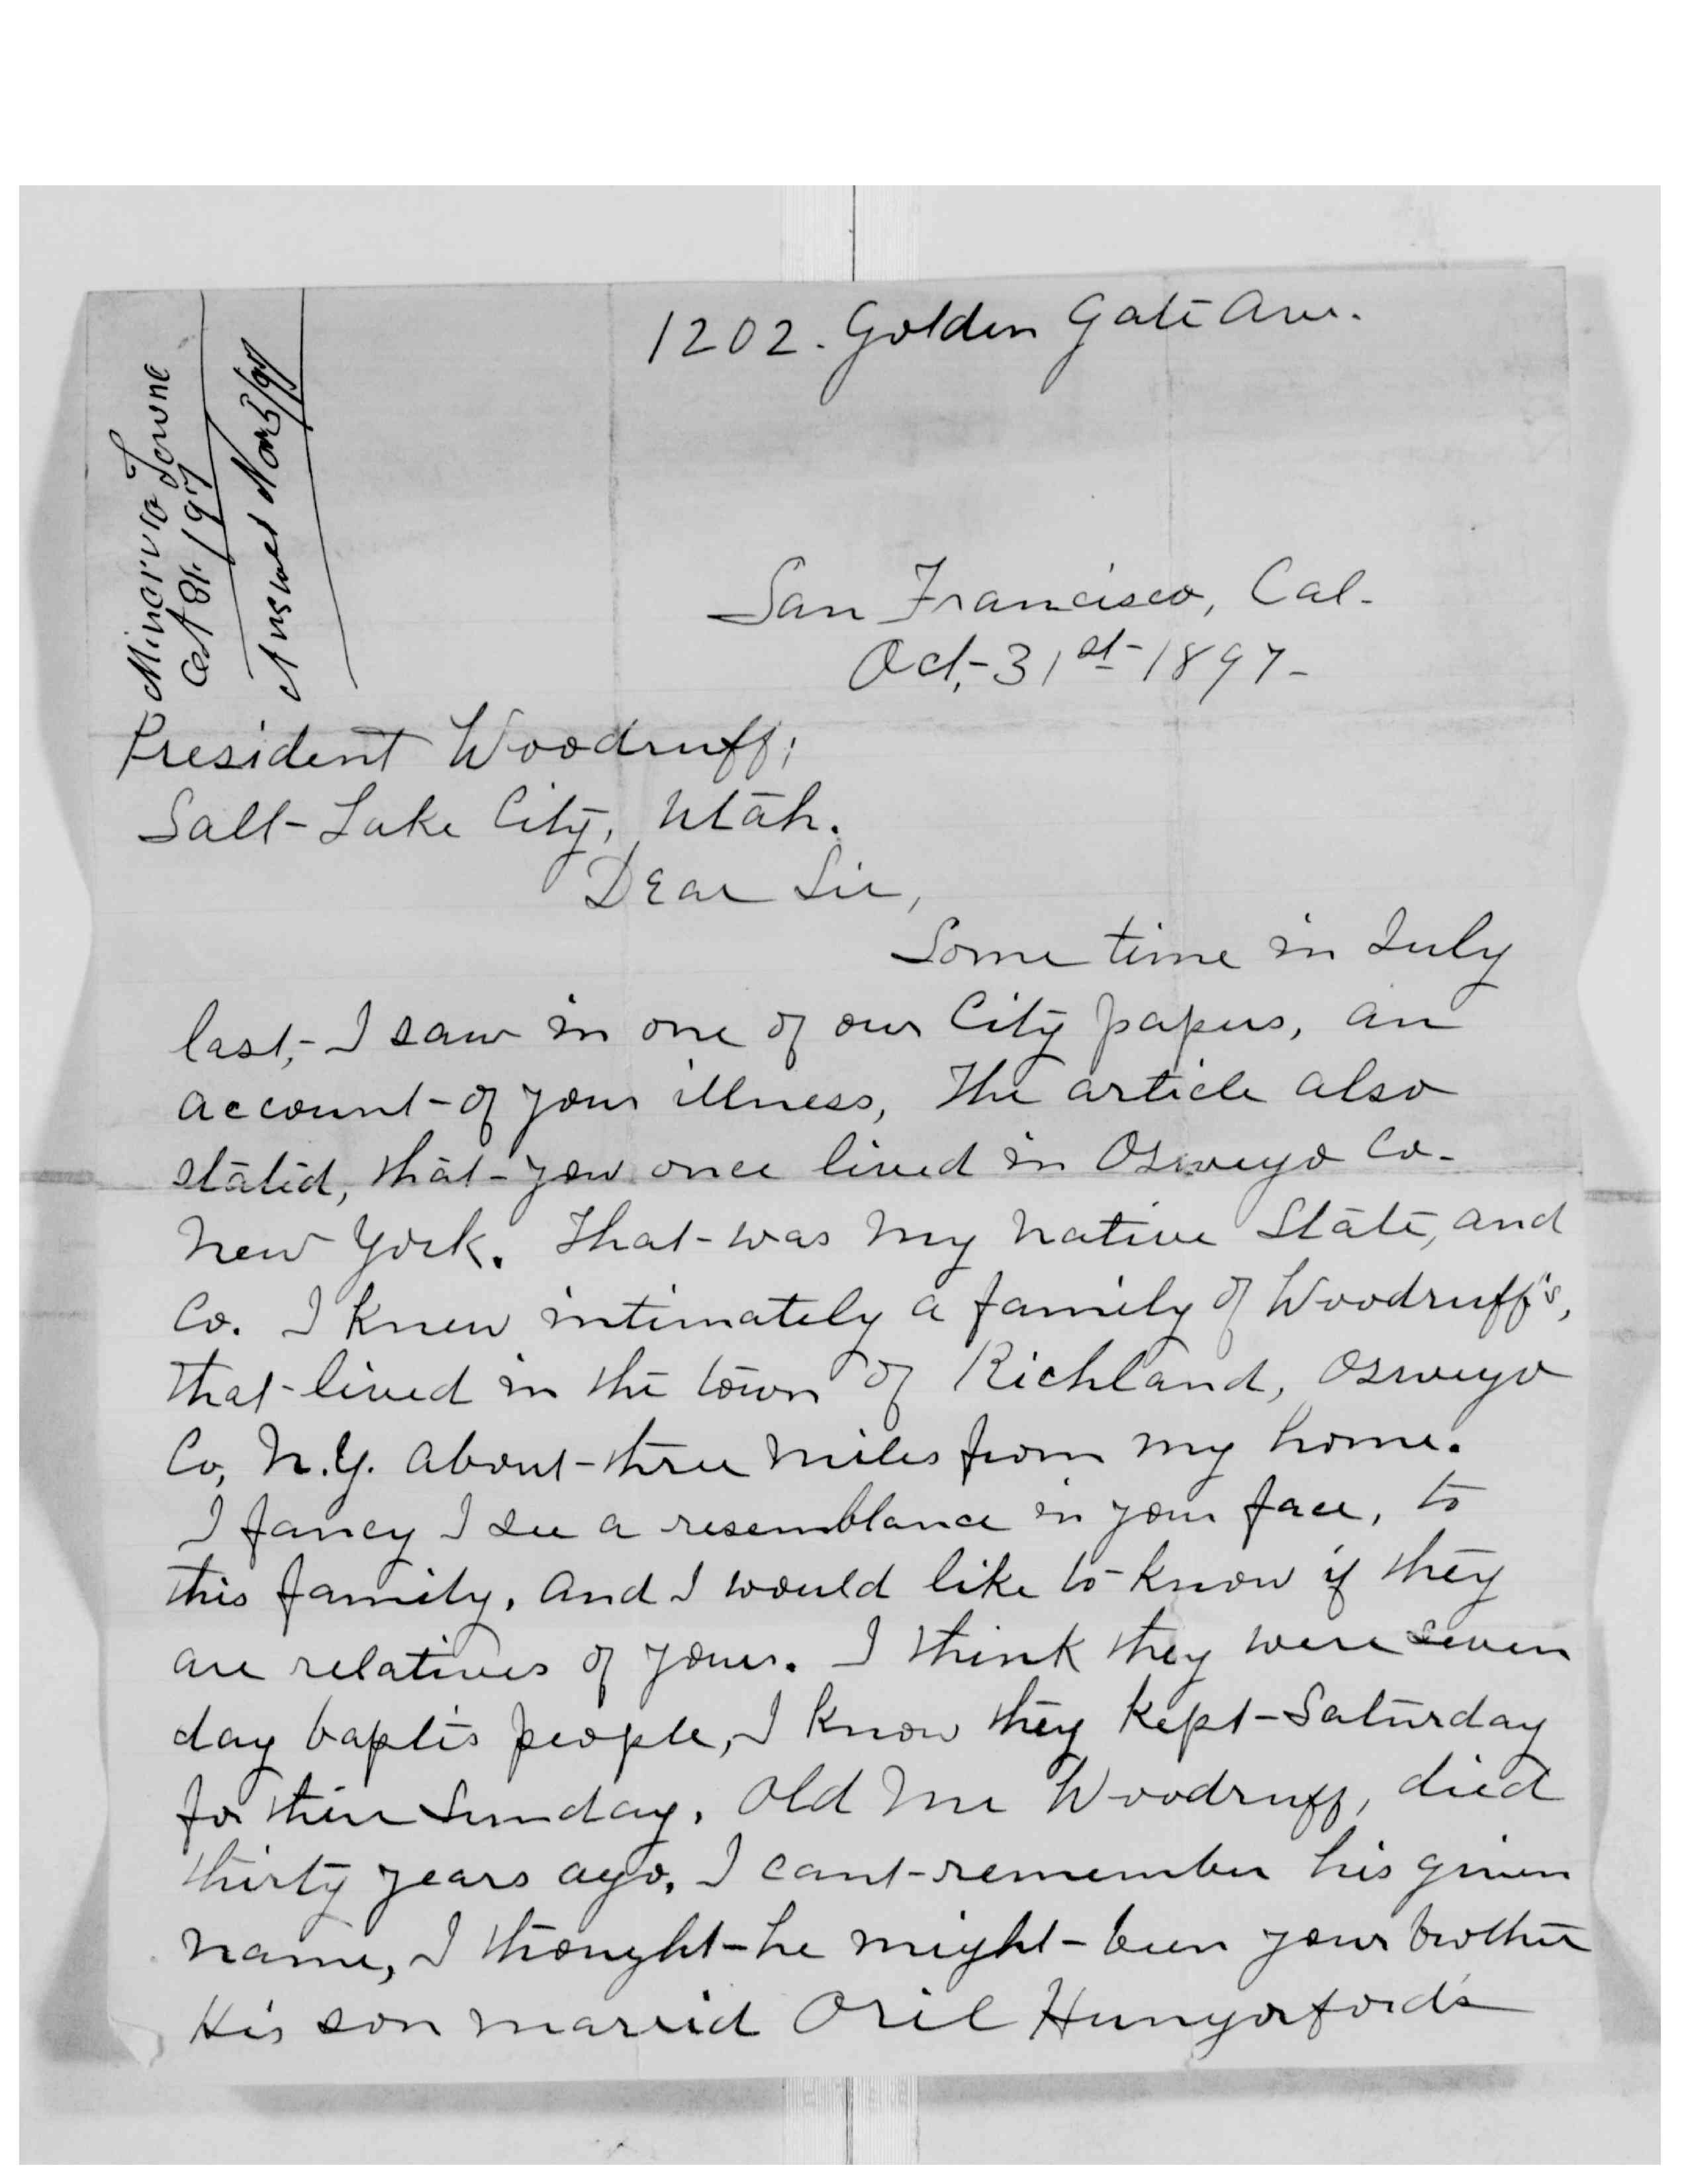 1202. Golden Gate Ave.
Minerva Towne
Oct 31/97
Answered Nov 5/97
San Francisco, Cal.
Oct, 31st 1897
President Woodruff;
Salt Lake City, Utah.
Dear Sir,
Some time in July
last, I saw in one of our City papers, an
account of your illness, The article also
stated, that you once lived in Oswego Co.
New York. That was my native State, and
Co. I knew intimately a family of Woodruff's,
that lived in the town of Richland, Oswego
Co, N.Y. about three miles from my home.
I fancy I see a resemblance in your face, to
this family, and I would like to know if they
are relatives of yours. I think they were seven
day baptis people, I know they kept Saturday
for their Sunday. Old Mr Woodruff, died
thirty years ago, I cant remember his given
name, I thought he might been your brother
His son married Oril Hungerford's